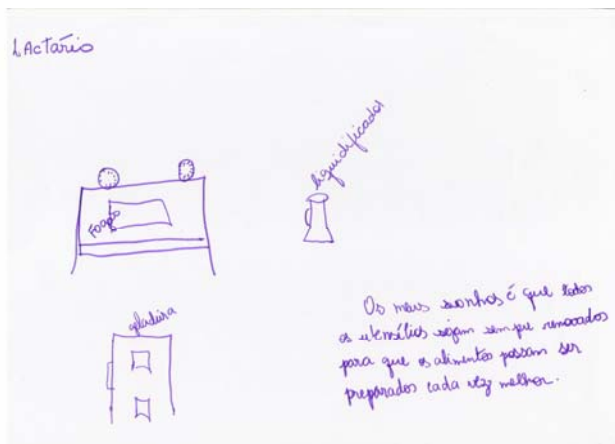 LActário
liquidificador
Fogão
geladeira
Os meus sonhos é que todos
os utensílios sejam sempre renovados
para que os alimentos possam ser
preparados cada vez melhor.